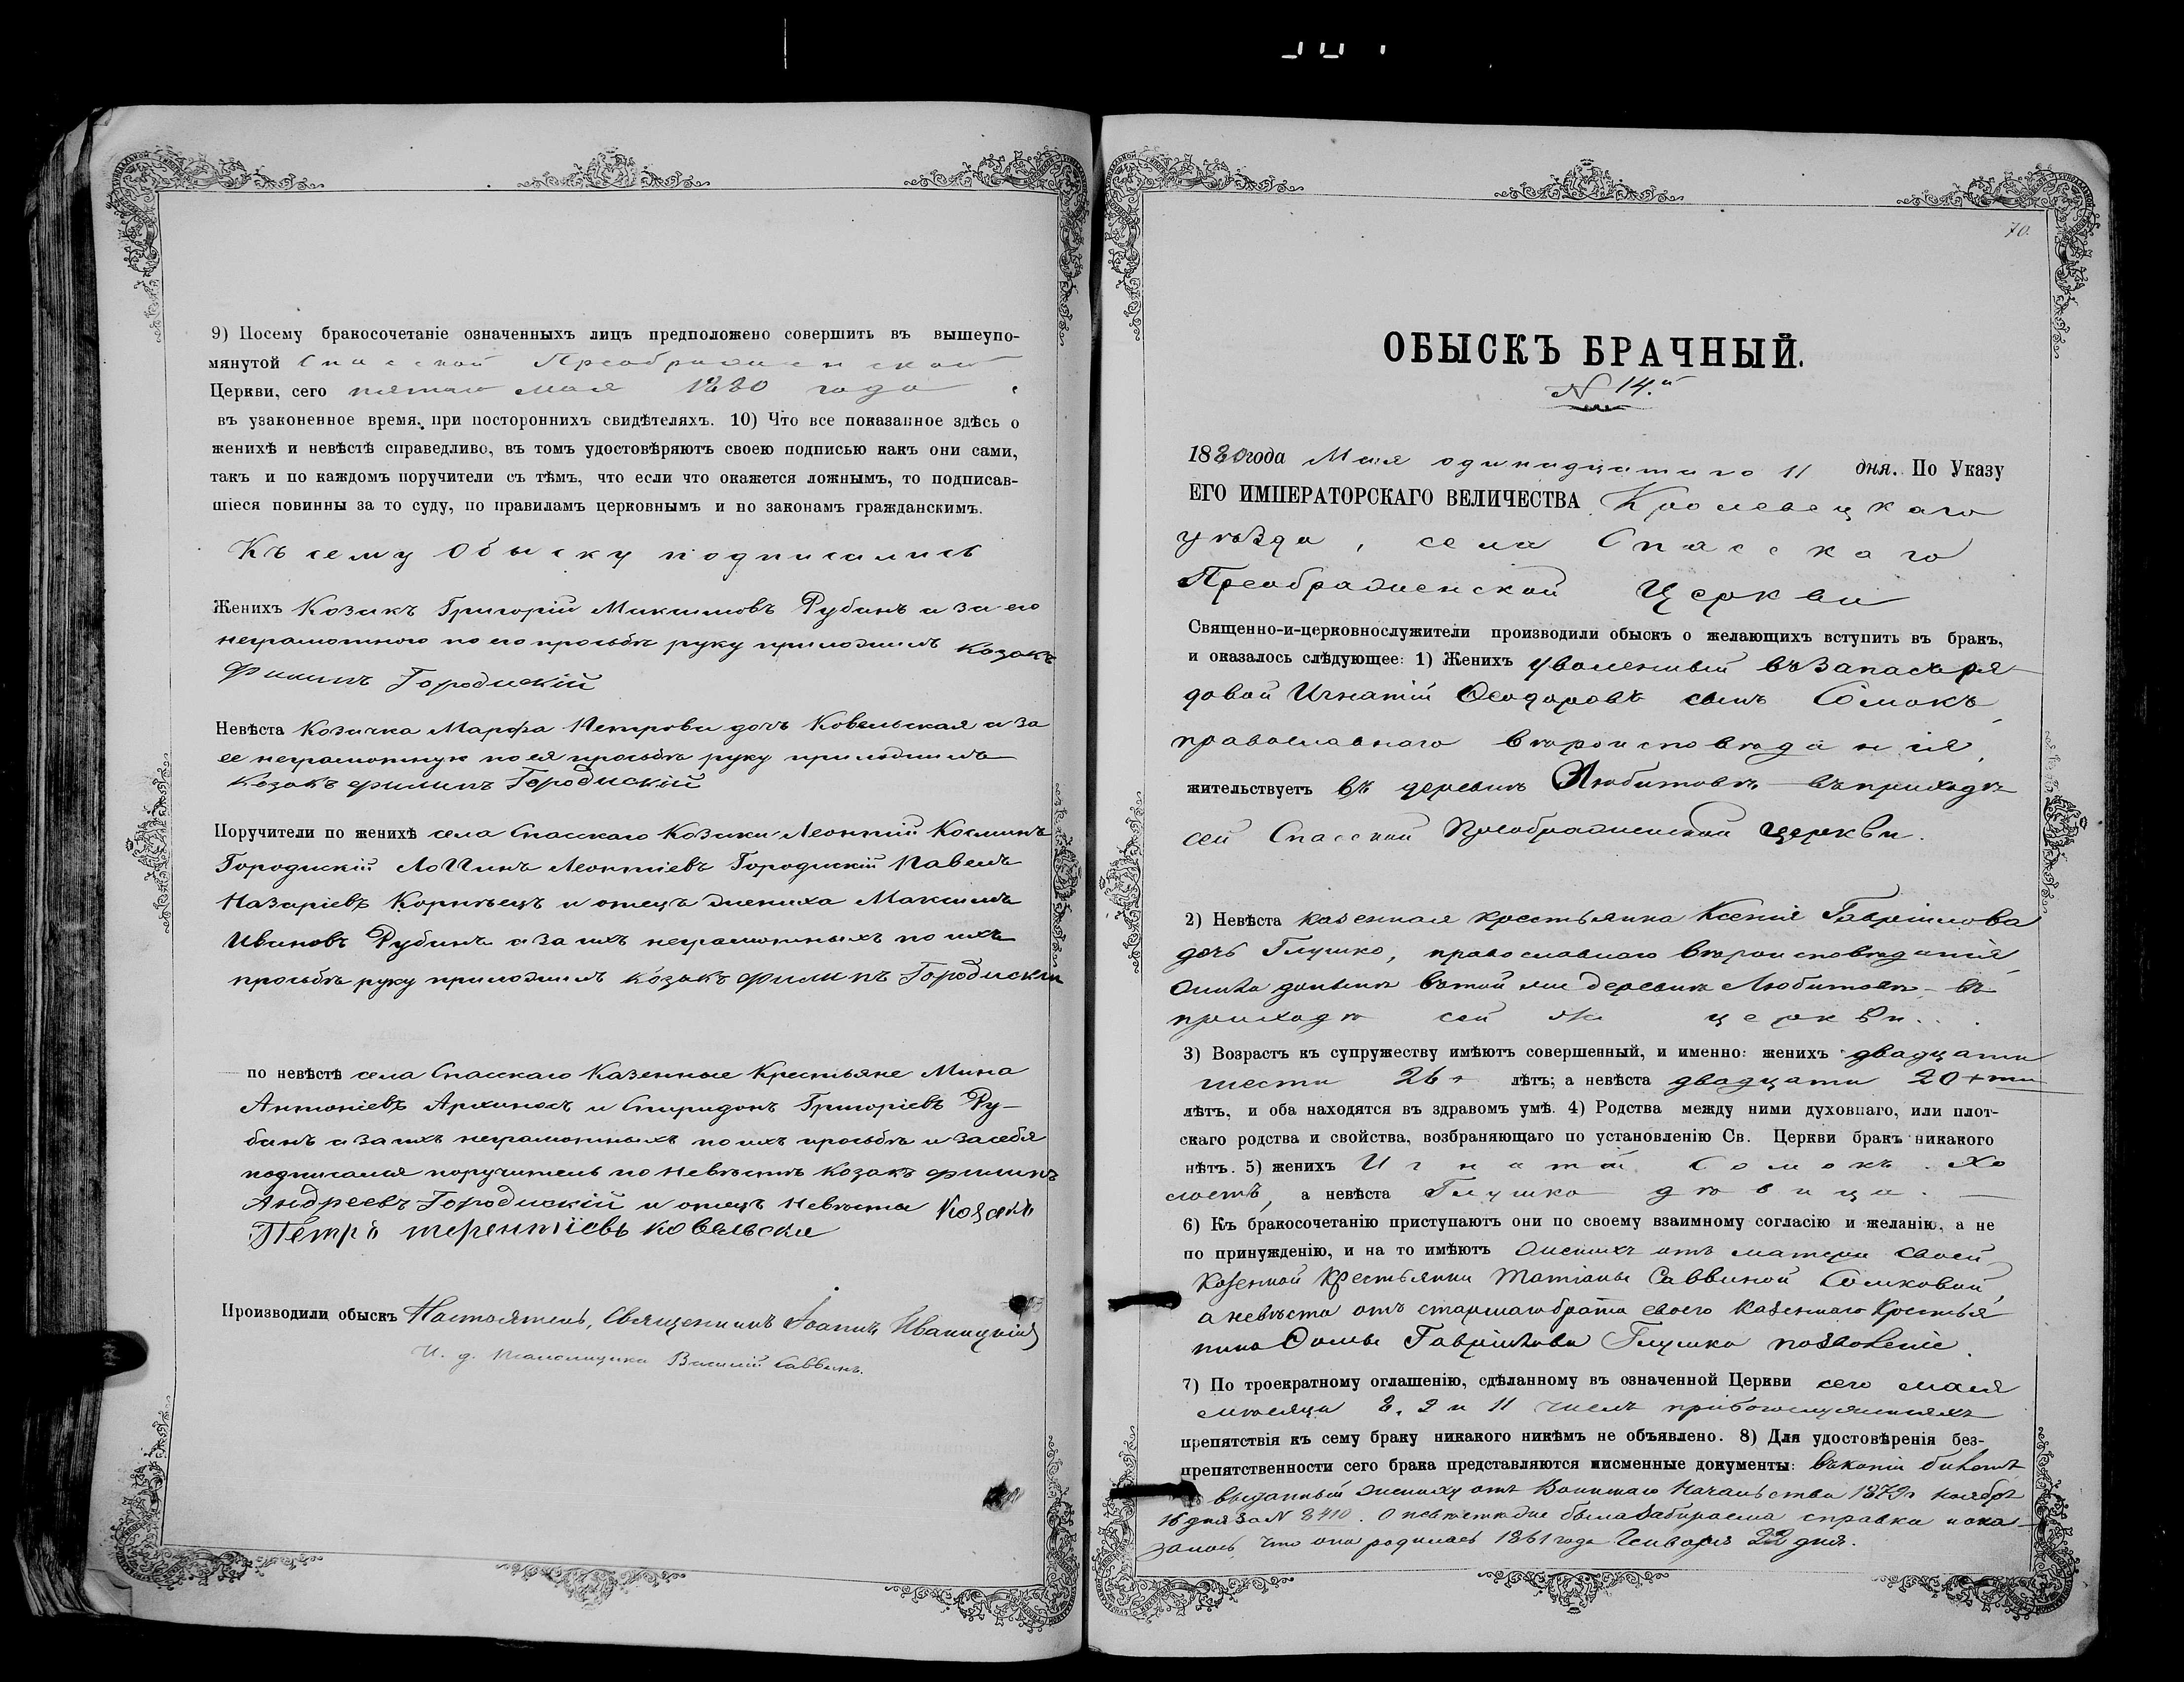 9) Посему бракосочетаніе означенныхъ лицъ предположено совершить въ вышеупо-
мянутой Спасской Преображенской
Церкви, сего пятаго мая 1880 года
въ узаконенное время, при постороннихъ свидѣтеляхъ. 10) Что все показанное здѣсь о
женихѣ и невѣстѣ справедливо, въ томъ удостовѣряютъ своею подписью какъ они сами,
такъ и по каждомъ поручители съ тѣмъ, что если что окажется ложнымъ, то подписав-
шіеся повинны за то суду, по правиламъ церковнымъ и по законамъ гражданскимъ.
Къ сему Обыску подписались
Женихъ Козакъ Григорій Максимовъ Рубанъ а за его
неграмотного по его просьбѣ руку приложилъ Козакъ
Филипъ Городискій
Невѣста Козачка Марфа Петрова дочь Ковельская а за
ее неграмотную по ея просьбѣ руку приложилъ
Козакъ Филипъ Городискій
Поручители по женихѣ села Спасскаго Козаки Леонтій Косминъ
Городискій Логинъ Леонтіевъ Городискій Павелъ
Назаріевъ Корнѣецъ и отецъ жениха Максимъ
Ивановъ Рубанъ а за ихъ неграмотныхъ по ихъ
просьбѣ руку приложилъ козакъ Филипъ Городискій
по невѣстѣ села Спасскаго Казенные Крестьяне Мина
Антоніевъ и Спиридонъ Григоріевъ Ру-
банъ а за ихъ неграмотныхъ по ихъ просьбѣ и за себя
подписался поручитель по невѣстѣ Козакъ Филипъ
Андреевъ Городискій и отецъ невѣсты Козакъ
Петръ терентіевъ ковельски
Производили обыскъ Настоятель, Священникъ Іоаннъ Иваницкій
И. д. Псаломщика Василій Саввинъ.
70.
ОБЫСКЪ БРАЧНЫЙ.
N 14.й
1880 года Мая одинадцатаго 11 дня. По Указу
ЕГО ИМПЕРАТОРСКАГО ВЕЛИЧЕСТВА Кролевецкаго
уѣзда, села Спасскаго
Преображенской Церкви
Священно-и-церковнослужители производили обыскъ о желающихъ вступить въ бракъ,
и оказалось слѣдующее: 1) Женихъ уволенный въ запасъ ря
довой Игнатій Ѳеодоровъ сынъ Сомокъ,
православнаго вѣроисповѣданія,
жительствуетъ въ деревнѣ Любитовкѣ въ приходѣ
сей Спасской Преображенской церкви.
2) Невѣста казенная крестьянка Ксенія Гавріилова
дочь Глушко, православнаго вѣроисповѣданія,
въ той же деревнѣ Любитовкѣ въ
приходѣ сей же церкви.
3) Возрастъ къ супружеству имѣютъ совершенный, и именно: женихъ двадцати
шести 26 лѣтъ; а невѣста двадцати 20+ти
лѣтъ, и оба находятся въ здравомъ умѣ. 4) Родства между ними духовнаго, или плот-
скаго родства и свойства, возбраняющаго по установленію Св. Церкви бракъ никакого
нѣтъ. 5) женихъ Игнатій Сомокъ. Хо
лостъ, а невѣста Глушко дѣвица.
6) Къ бракосочетанію приступаютъ они по своему взаимному согласію и желанію, а не
по принужденію, и на то имѣютъ женихъ отъ матери своей
Казенной Крестьянки Татіаны Саввиной Сомковой,
а невѣста отъ старшаго брата своего казеннаго Крестья
нина Ѳомы Гавріилова Глушко позволеніе.
7) По троекратному оглашенію, сдѣланному въ означенной Церкви сего мая
мѣсяца 8, 9 и 11 числъ при богослуженіяхъ
препятствія къ сему браку никакого никѣмъ не объявлено. 8) Для удостовѣренія без-
препятственности сего брака представляются писменные документы: въ копіи билетъ
выданный жениху отъ Воинскаго Начальства 1879 г. ноября
16 дня за N 8410. О невѣстѣ же была забираема справка и ока
залось, что она родилась 1861 года Генваря 22 дня.